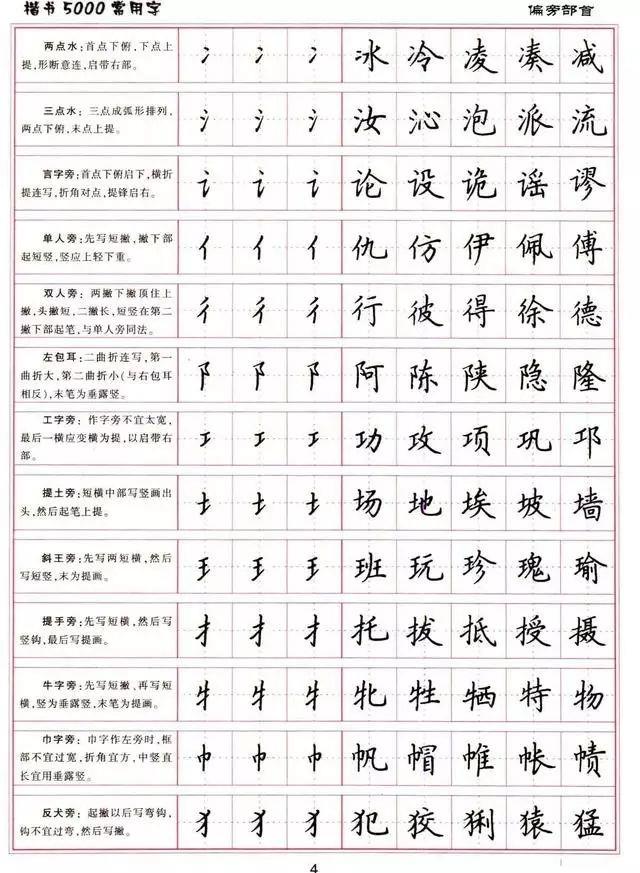 楷书5000常用字 偏旁部首
两点水:首点下俯,下点上
提,形断意连,启带右部。
冫 冫 冫 冰 冷 凌 凑 减
三点水:三点成弧形排列,
两点下俯,末点上提。
氵 氵 氵 汝 沁 泡 派 流
言字旁:首点下俯启下,横折
提连写,折角对点,提锋启右。
讠 讠 讠 论 设 诡 谣 谬
单人旁:先写短撇,撇下部
起短竖,竖应上轻下重。
亻 亻 亻 仇 仿 伊 佩 傅
双人旁:两撇下撇顶住上
撇,头撇短,二撇长,短竖在第二
撇下部起笔,与单人旁同法。
彳 彳 彳 行 彼 得 徐 德
左包耳:二曲折连写,第一
曲折大,第二曲折小(与右包耳
相反),末笔为垂露竖。
阝 阝 阝 阿 陈 陕 隐 隆
工字旁:作字旁不宜太宽,
最后一横应变横为提,以启带右
部。
工 工 工 功 攻 项 巩 邛
提土旁:短横中部写竖画出
头,然后起笔上提。
土 土 土 场 地 埃 坡 墙
斜王旁:先写两短横,然后
写短竖,末为提画。
王 王 王 班 玩 珍 瑰 瑜
提手旁:先写短横,然后写
竖钩,最后写提画。
扌 扌 扌 托 拔 抵 授 摄
牛字旁:先写短撇、再写短
横,竖为垂露竖,末笔为提画。
牜 牜 牜 牝 牲 牺 特 物
巾字旁:巾字作左旁时,框
部不宜过宽,折角宜方,中竖直
长宜用垂露竖。
巾 巾 巾 帆 帽 帷 帐 帻
反犬旁:起撇以后写弯钩,
钩不宜过弯,然后写撇。
犭 犭 犭 犯 狡 猁 猿 猛
4